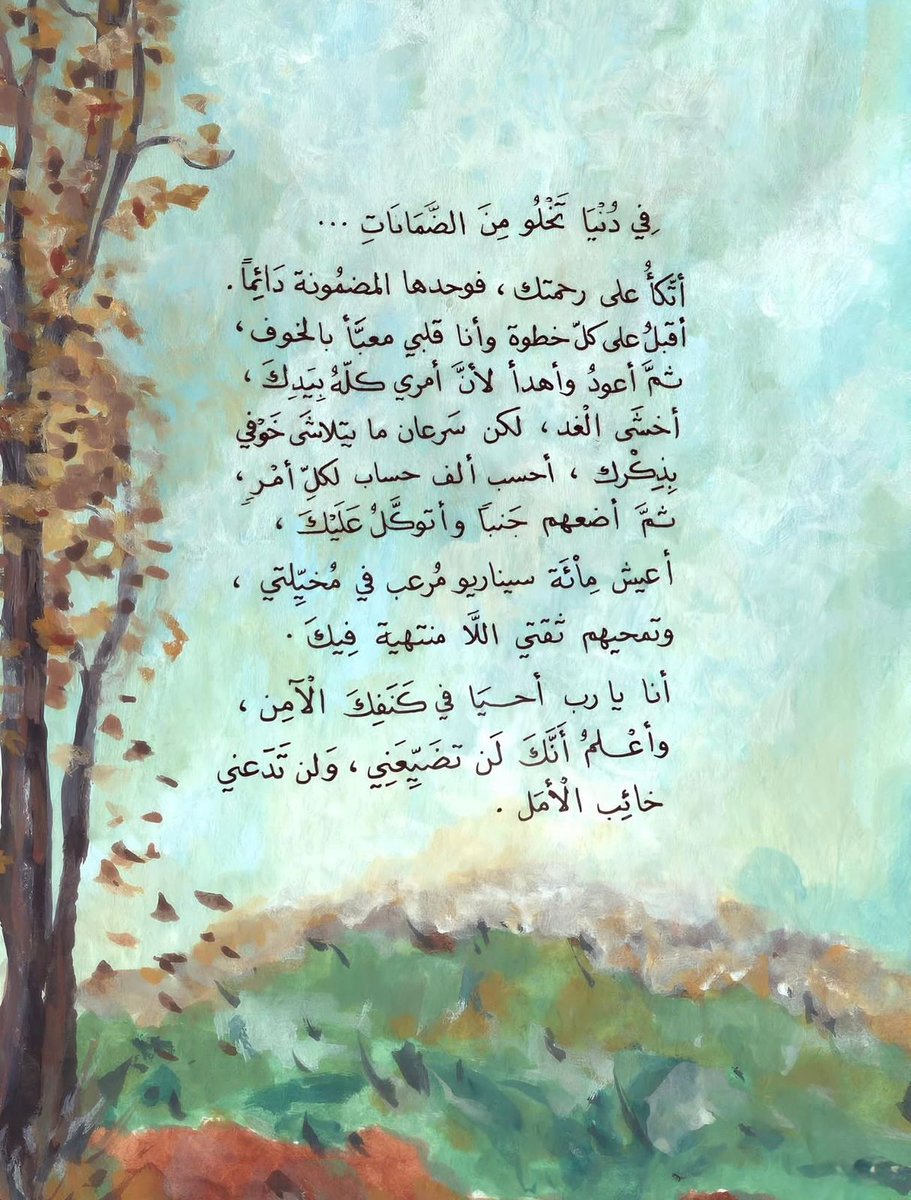 فِي دُنْيَا تَخْلُو مِنَ الضَّمَانَاتِ ...
أتَّكَأُ على رحمتك ، فوحدها المضمُونة دَائِماً .
أقبلُ على كلّ خطوة وأنا قلبي معبَّأ بالخوف ،
ثمَّ أعودُ وأهدأ لأنَّ أمري كلّهُ بِيَدِكَ ،
أخشَى الْغد ، لكن سَرعان ما يتلاشَى خَوْفي
بِذِكْرك ، أحسب ألف حساب لكلِّ أمْرٍ ،
ثمَّ أضعهم جَنباً وأتوكَّلُ عَلَيْكَ ،
أعيش مِاْئَة سيناريو مُرعب في مُخيِّلتي ،
وتمحيهم ثقتي اللَّا منتهية فِيكَ .
أنا يا رب أحيَا في كَنَفِكَ الْآمِن ،
وأعْلمُ أَنَّكَ لَن تضَيِّعَنِي ، وَلن تَدَعني
خائِب الْأمَل .